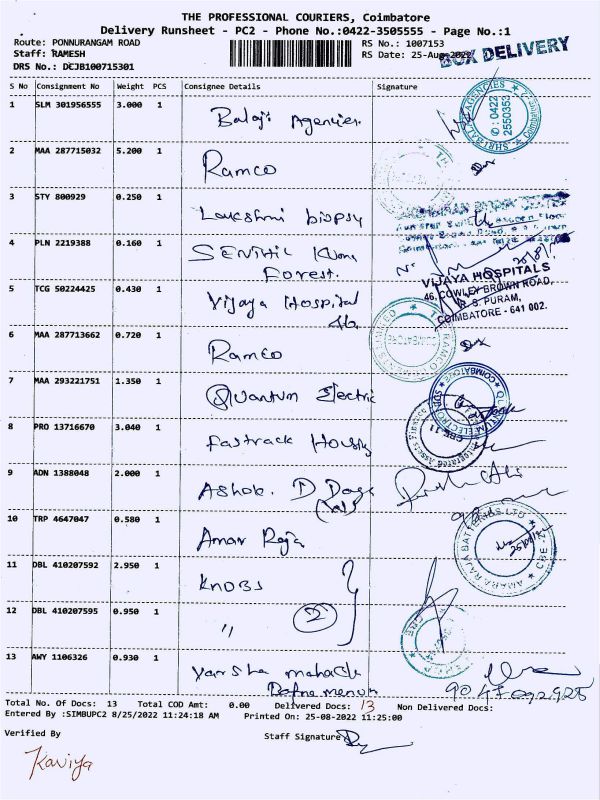 THE PROFESSIONAL COURIERS, Coimbatore
Delivery Runsheet - PC2 - Phone No.:0422-3505555 - Page No.:1
Route: PONNURANGAM ROAD
Staff: RAMESH
DRS No.: DEJB100715301
RS No.: 1007153
RS Date: 25-Aug-2022
BOX DELIVERY
S No Consignment No Weight PCS Consignee Details Signature
1 SLM 301956555 3.000 1 Balaji Agencies
SHRI BALAJI AGENCIES ✆: 0422 2550353 Coimbatore
2 MAA 287715032 5.200 1 Ramco
3 STY 800929 0.250 1 Lakshmi biopsy
4 PLN 2219388 0.160 1 SENTHIL
Forest.
5 TCG 50224425 0.430 1 Vijaya Hospital
VIJAYA HOSPITALS
46, COWLEY BROWN ROAD,
R. S. PURAM,
COIMBATORE - 641 002.
6 MAA 287713662 0.720 1 Ramco
COIMBATORE
7 MAA 293221751 1.350 1 Quantum Electric
8 PRO 13716670 3.040 1 Fastrack
CBE-11
9 ADN 1388048 2.000 1 Ashok. D
10 TRP 4647047 0.580 1 Amar Raja
AMARA RAJA BATTERIES LTD CBE
11 DBL 410207592 2.950 1 KNOBS
12 DBL 410207595 0.950 1 " 2
13 AWY 1106326 0.930 1 Varsha
Total No. Of Docs: 13 Total COD Amt: 0.00 Delivered Docs: 13 Non Delivered Docs:
Entered By :SIMBUPC2 8/25/2022 11:24:18 AM Printed On: 25-08-2022 11:25:00
Verified By Staff Signature
Kaviya